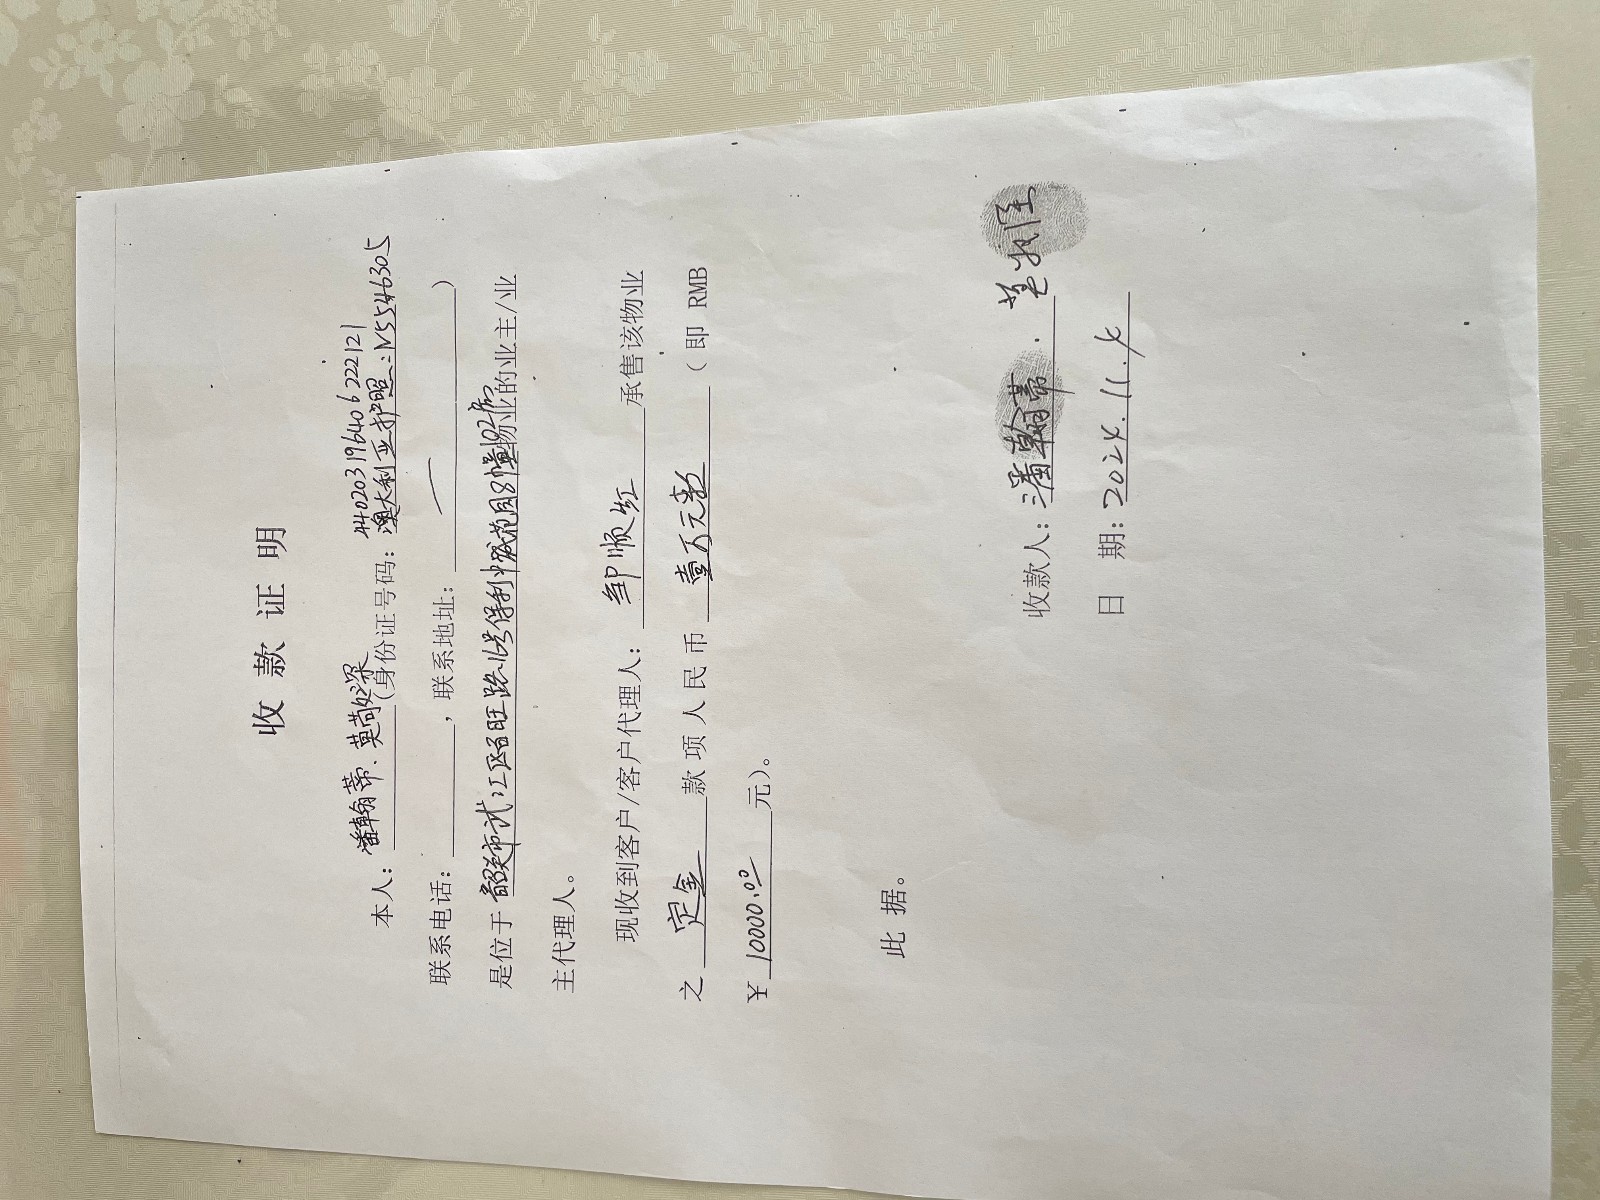 收款证明
440203196406222121
本人：潘翰蒂、莫尚深（身份证号码：澳大利亚护照：N5546305
联系电话：，联系地址：一）
是位于韶关市武江区百旺路1号保利中宸花园8幢102房物业的业主/业
主代理人。
现收到客户/客户代理人：邹顺红承售该物业
之定金款项人民币壹万元整（即 RMB
￥10000.00元）。
此据。
收款人：潘翰蒂．
日 期：2024.11.4